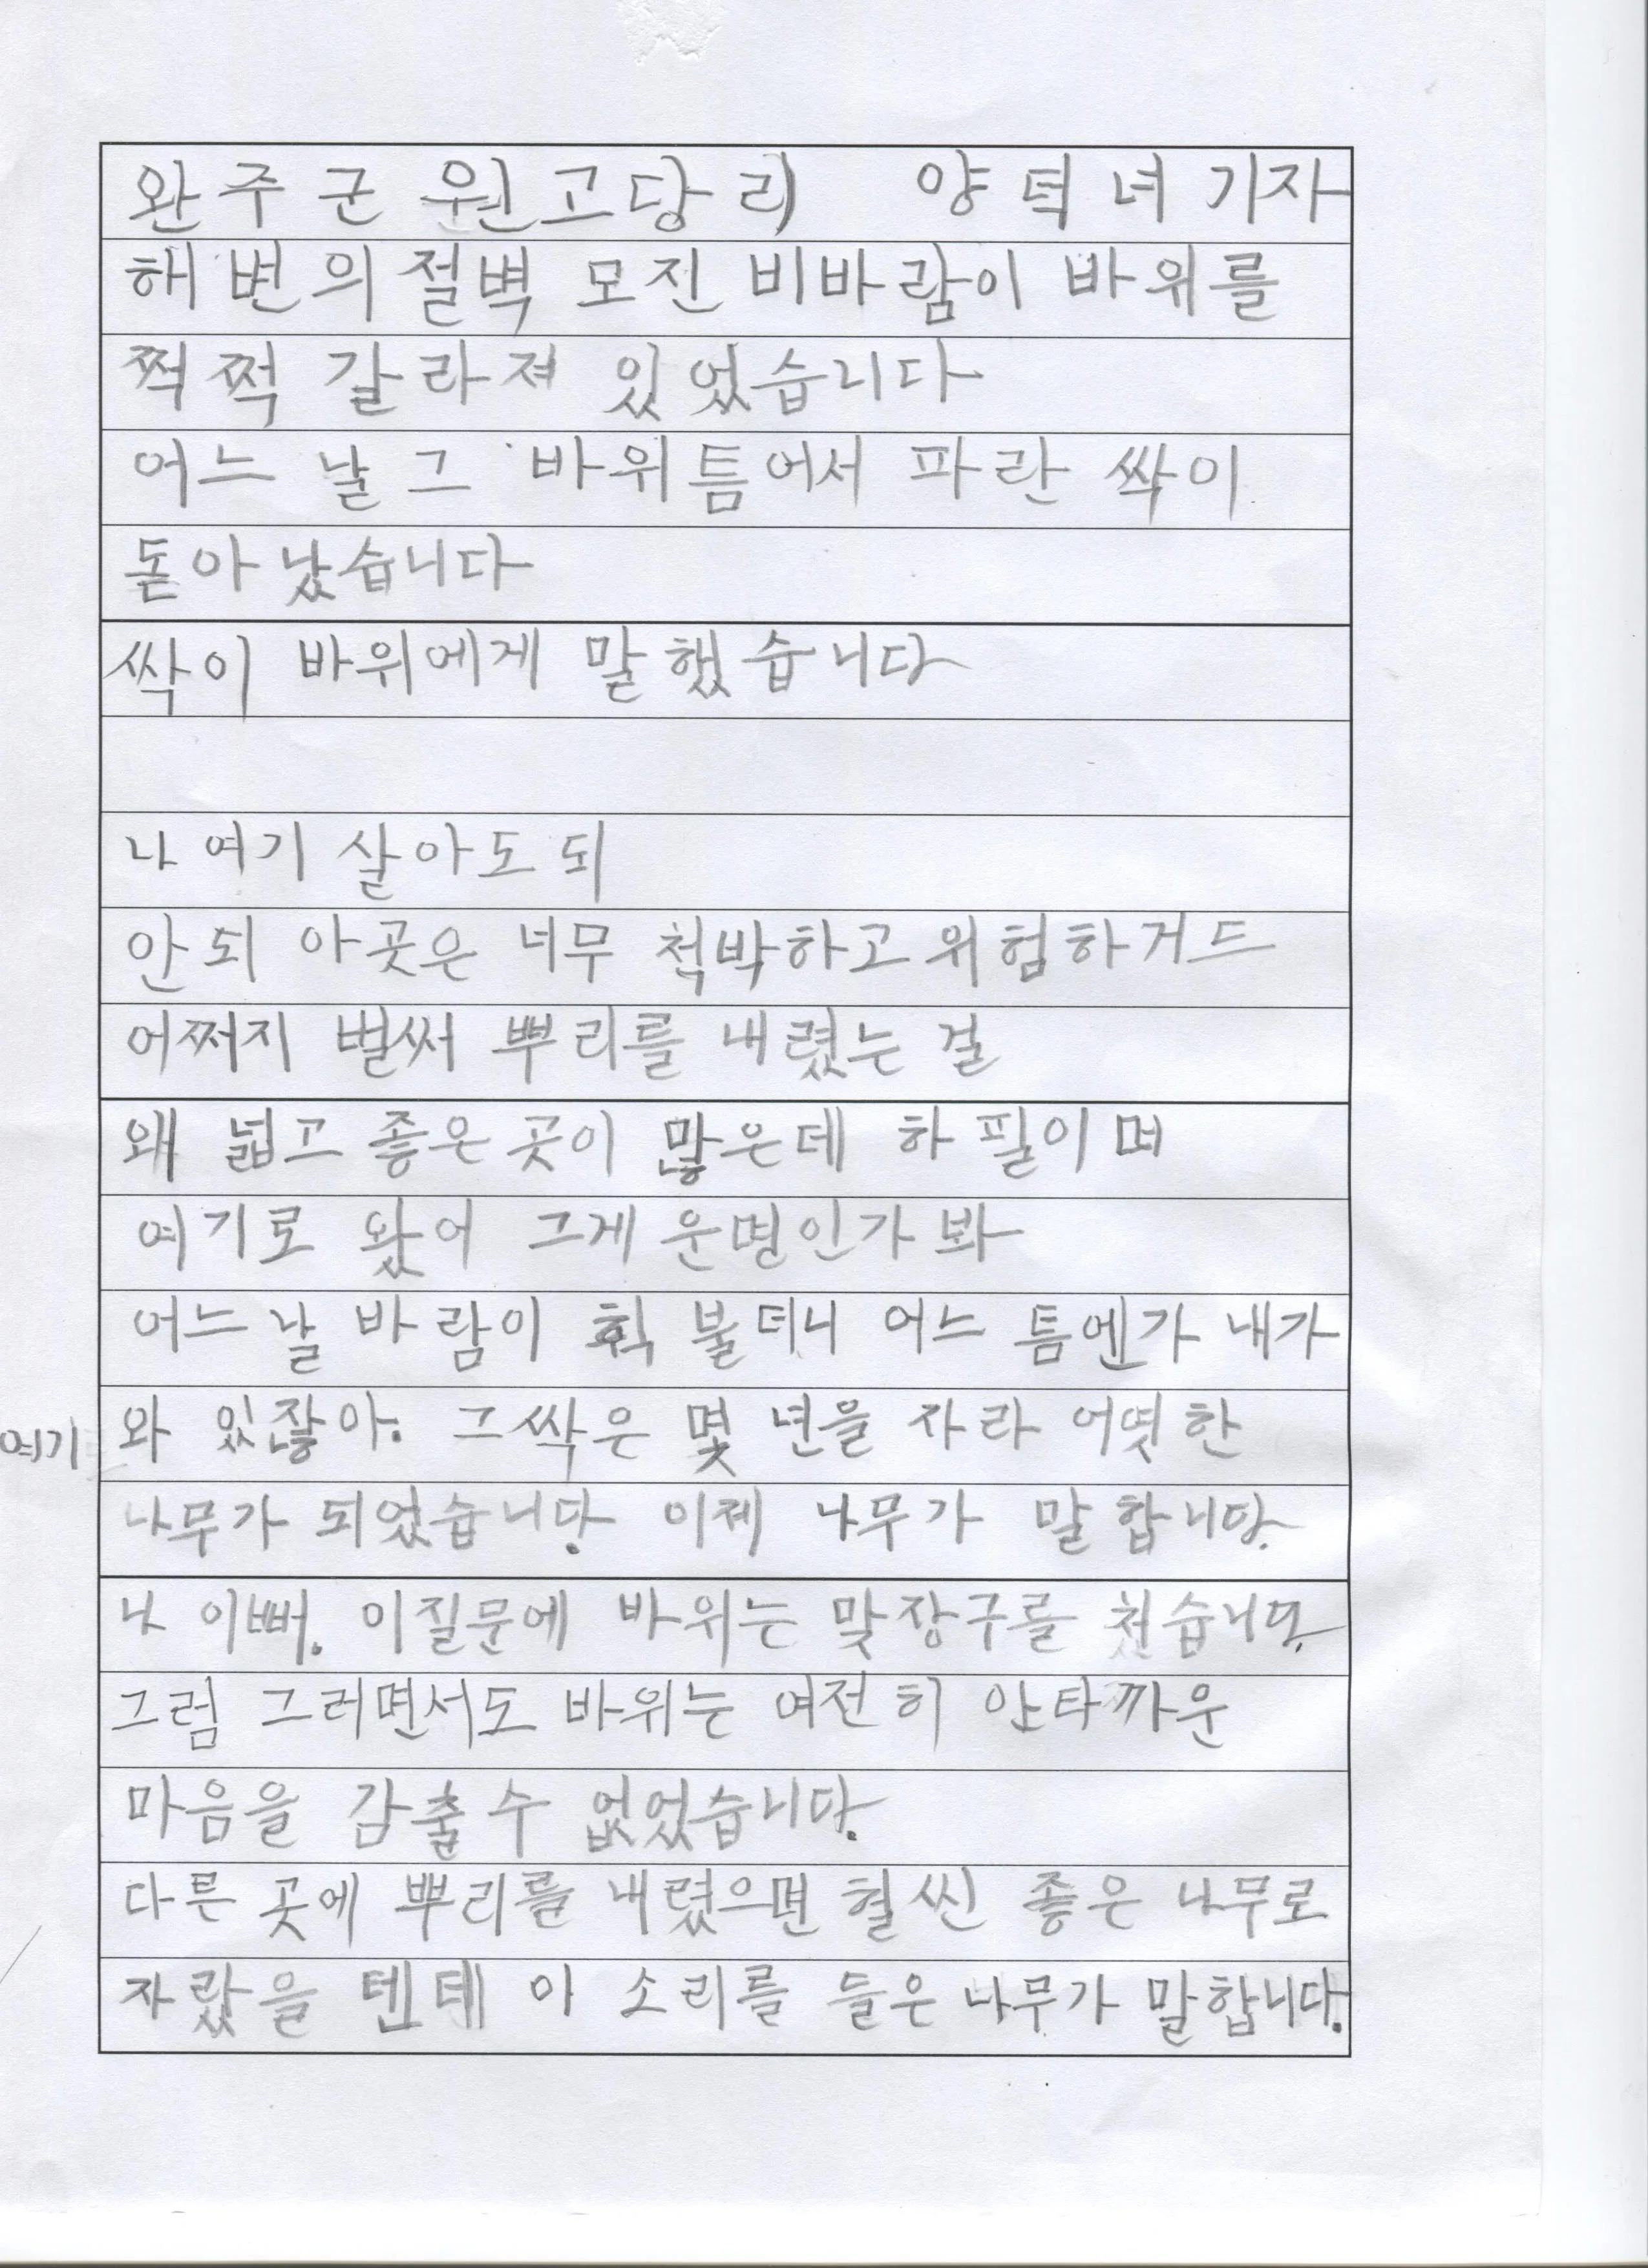 완주군 원고당리 양덕녀 기자
해변의 절벽 모진 비바람이 바위를
쩍쩍 갈라져 있었습니다
어느 날 그 바위틈어서 파란 싹이
돋아 났습니다
싹이 바위에게 말했습니다
나 여기 살아도 되
안되 아곳은 너무 척박하고 위험하거드
어쩌지 벌써 뿌리를 내렸는 걸
왜 넓고 좋은 곳이 많은데 하필이며
여기로 왔어 그게 운명인가 봐
어느날 바람이 휙 불더니 어느 틈엔가 내가
여기 와 있잖아. 그싹은 몇 년을 자라 어엿한
나무가 되었습니다. 이제 나무가 말합니다.
나 이뻐. 이질문에 바위는 맞장구를 첬습니다.
그럼 그러면서도 바위는 여전히 안타까운
마음을 감출수 없었습니다.
다른 곳에 뿌리를 내렸으면 훨씬 좋은 나무로
자랐을 텐데 이 소리를 들은 나무가 말합니다.